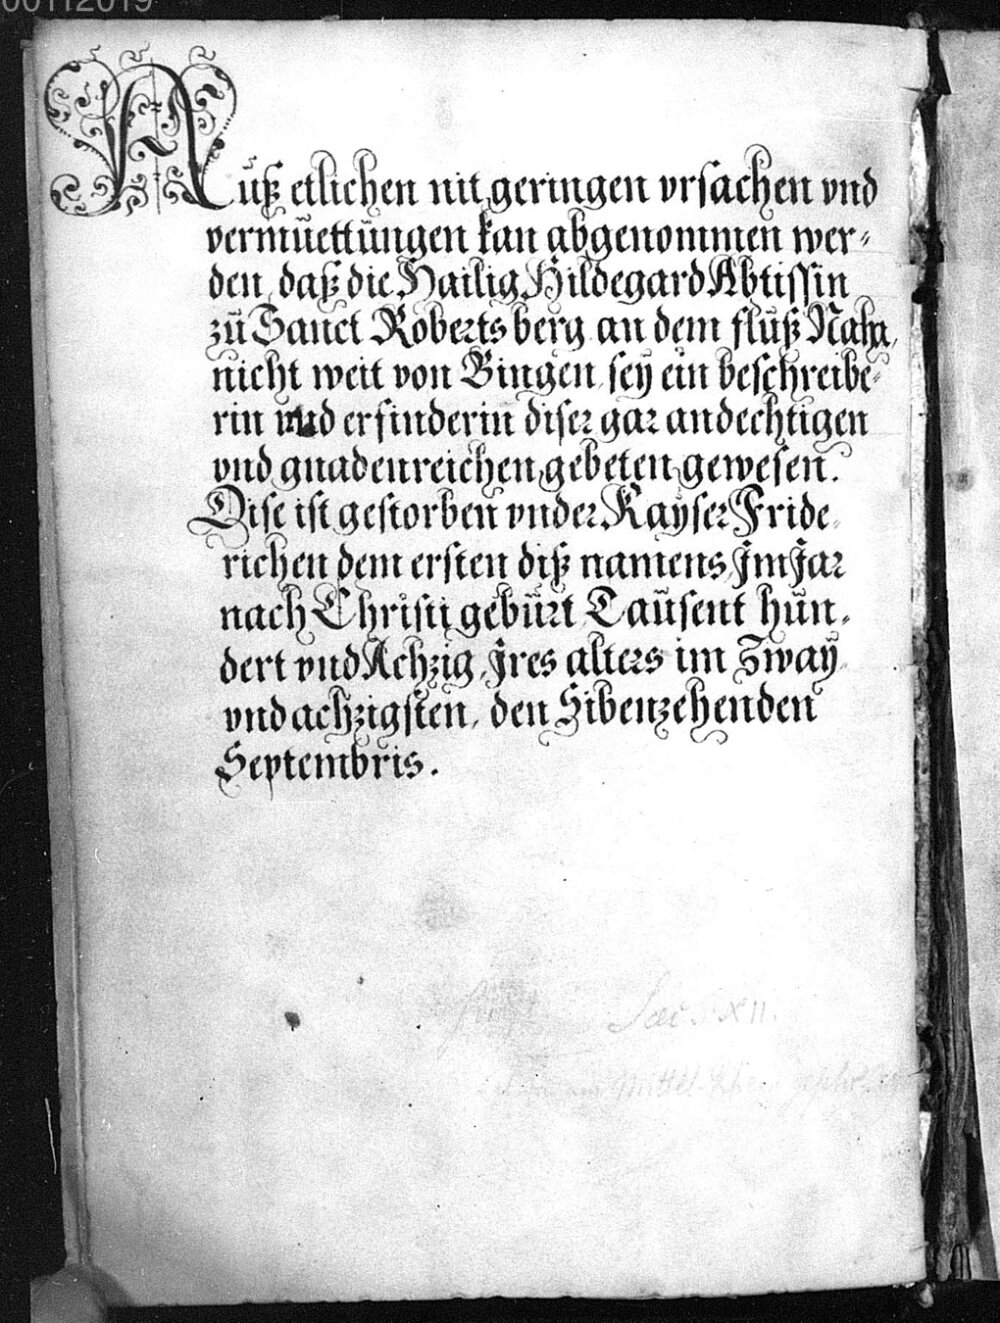 00112019
Auß etlichen nit geringen vrsachen vnd
vermüettüngen kan abgenommen wer-
den, daß die Hailig Hildegard Abtissin
zü Sanct Roberts berg an dem flüß Naha,
nicht weit von Bingen, seÿ ein beschreibe-
rin vnd erfinderin diser gar andechtigen
vnd gnadenreichen gebeten gewesen.
Dise ist gestorben vnder Kaÿser Fride-
richen dem ersten diß namens, Im Jar
nach Christi gebürt Taüsent hün-
dert vnd Achzig, Ires alters im Zwaÿ
vnd achzigsten, den Sibenzehenden
Septembris.
Saec. XII.
Mittel